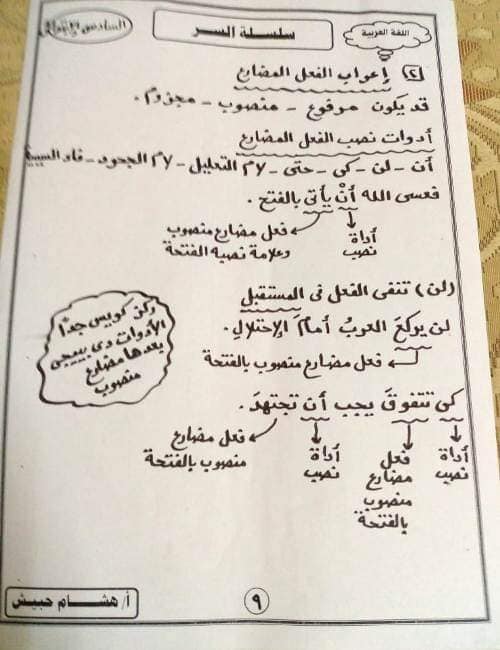 اللغة العربية
سلسلة السر
السادس الابتدائي
(٢) إعراب الفعل المضارع
قد يكون مرفوع - منصوب - مجزوم.
أدوات نصب الفعل المضارع
أن - لن - كى - حتى - لام التعليل - لام الجحود - فاء السببية
فعسى الله أنْ يأتىَ بالفتح.
أداة نصب
فعل مضارع منصوب
وعلامة نصبه الفتحة
(لن) تنفى الفعل فى المستقبل
لن يركعَ العربُ أمامَ الإحتلالِ.
فعل مضارع منصوب بالفتحة
ركن كويس جدًا
الأدوات دى بييجى
بعدها مضارع
منصوب
كى تتفوقَ يجب أن تجتهدَ.
أداة نصب
فعل مضارع منصوب بالفتحة
أداة نصب
فعل مضارع
منصوب بالفتحة
أ/ هشام حبيش
٩